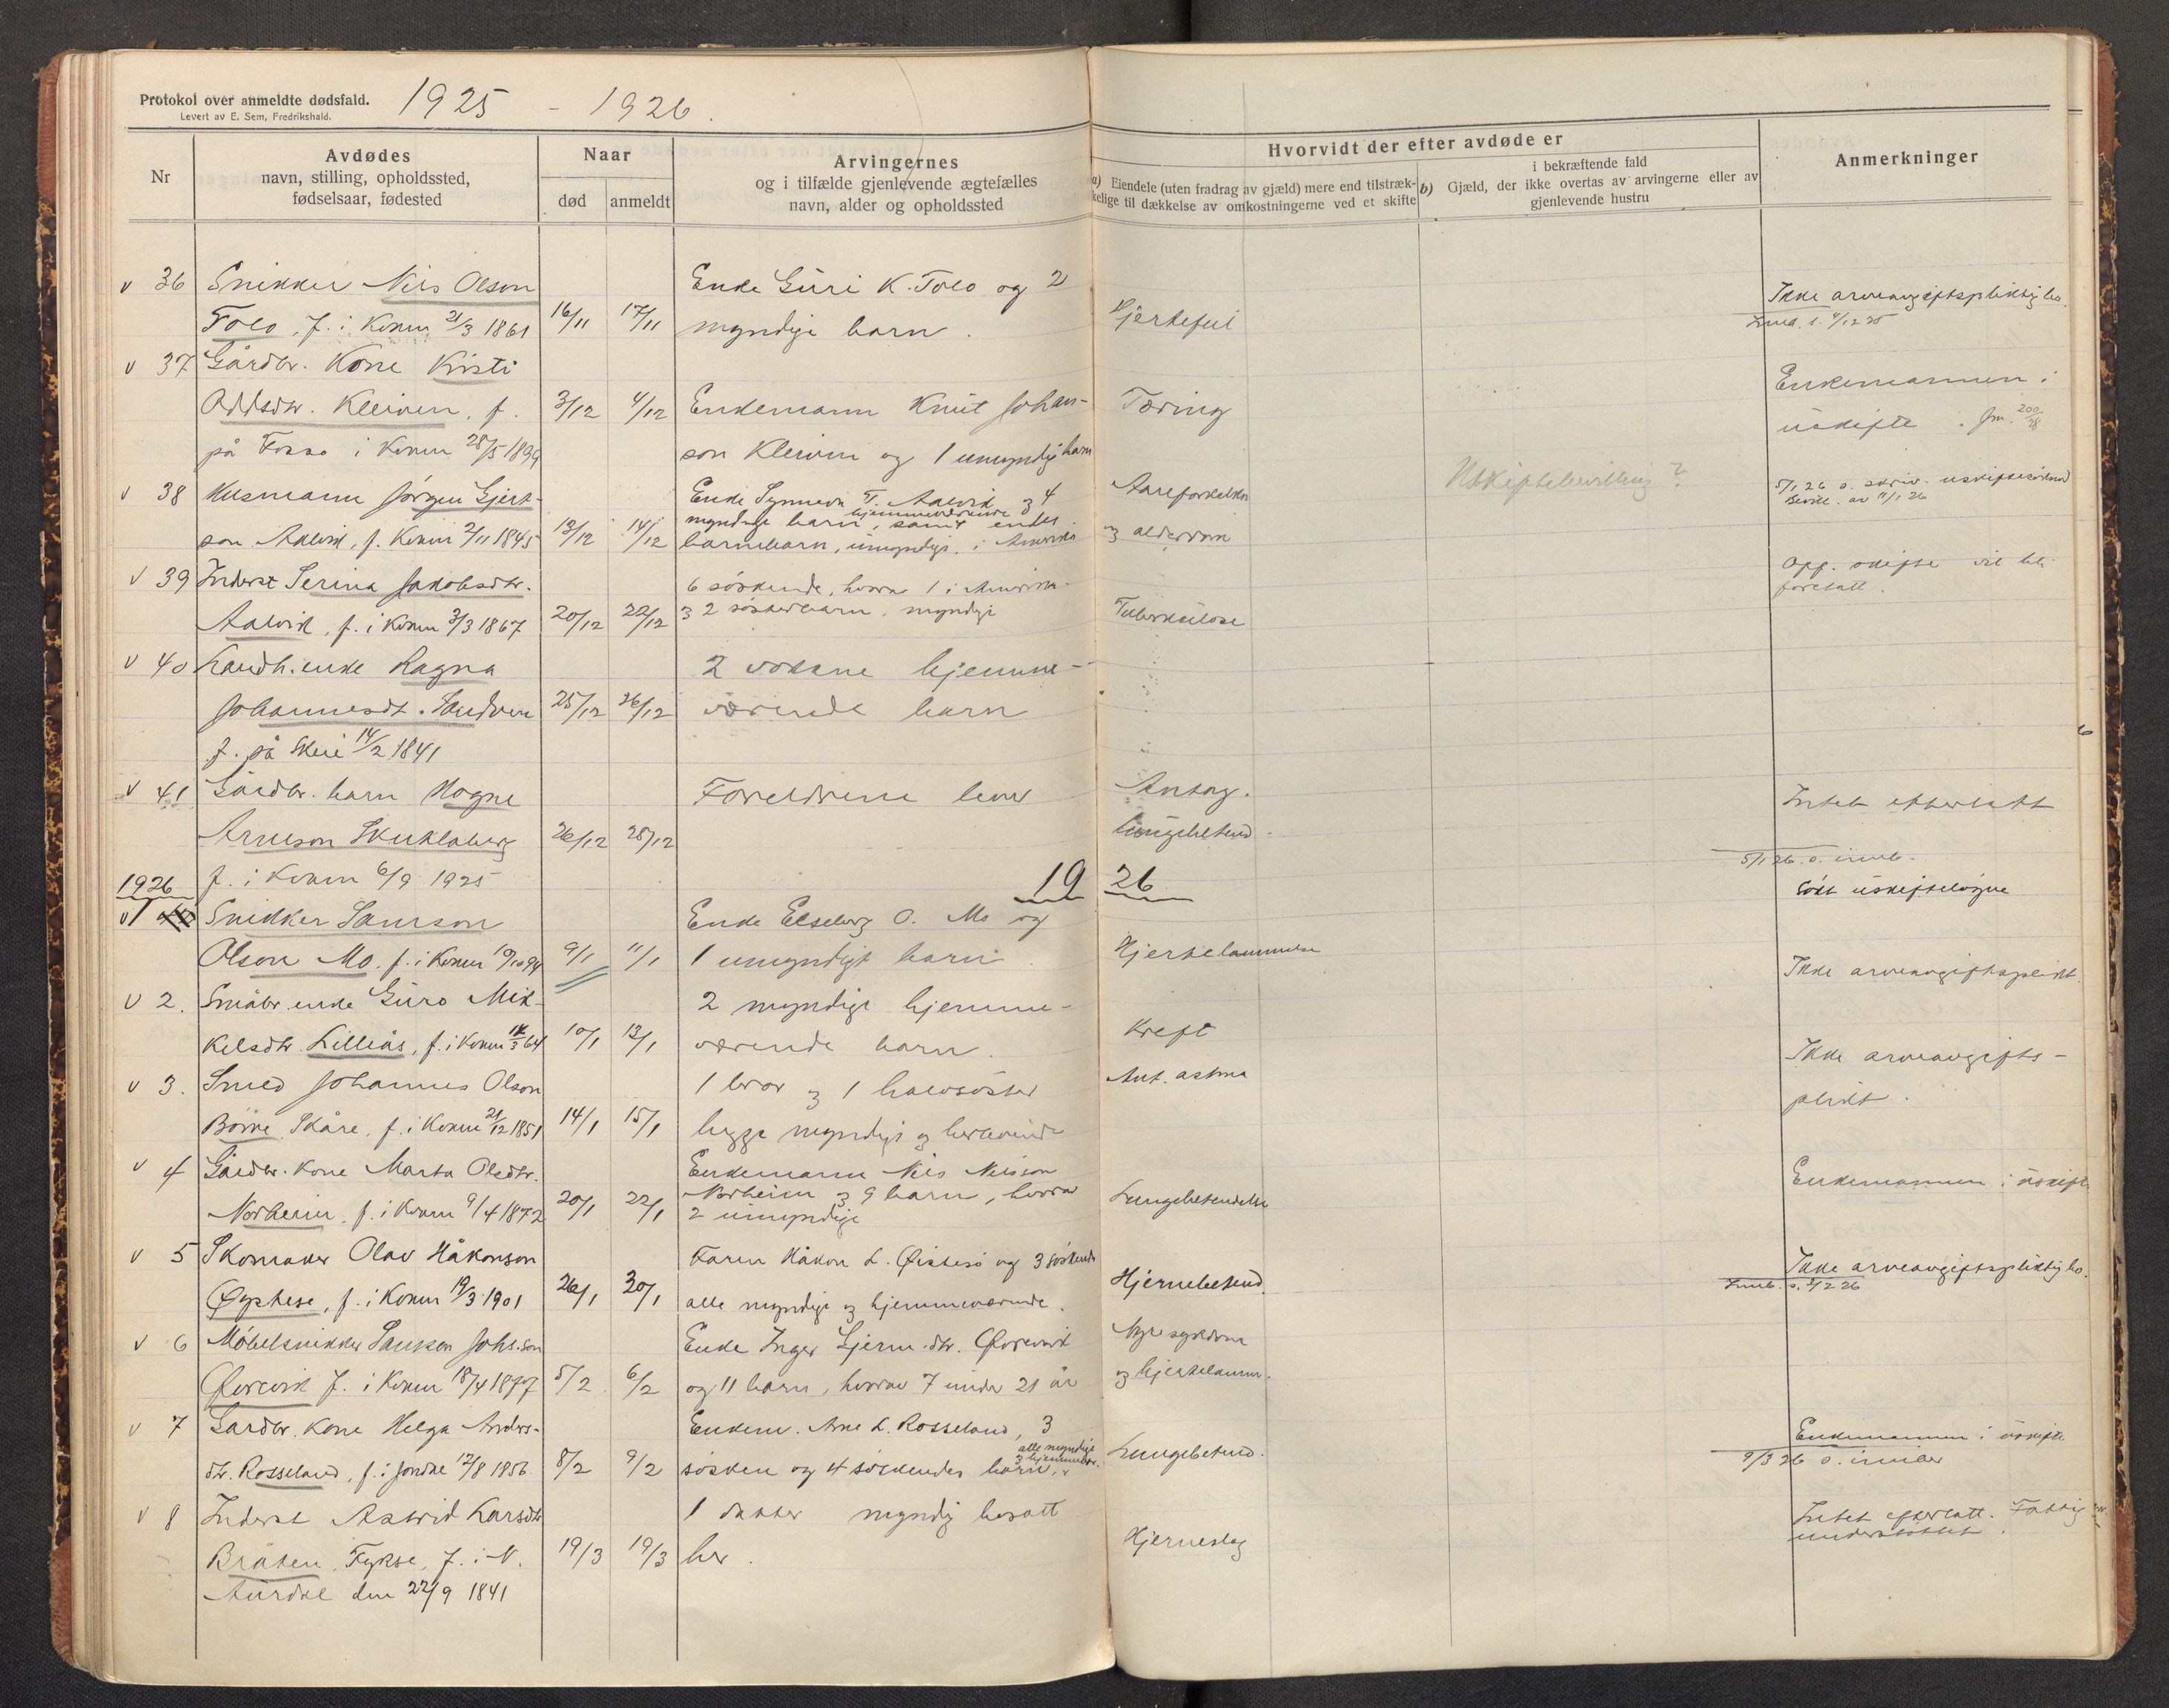 Protokol over anmeldte dødsfald.
Levert av E. Sem, Fredrikshald.
1925 - 1926.
Nr
Avdødes
navn, stilling, opholdssted,
fødselsaar, fødested
Naar
død
anmeldt
Arvingernes
og i tilfælde gjenlevende ægtefælles
navn, alder og opholdssted
Hvorvidt der efter avdøde er
a) Eiendele (uten fradrag av gjæld) mere end tilstræk-
kelige til dækkelse av omkostningerne ved et skifte
i bekræftende fald
b) Gjæld, der ikke overtas av arvingerne eller av
gjenlevende hustru
Anmerkninger
v 36 Snikker Nils Olson Enke Guri K. Tolo og 2
Tolo, f. i Kvam 21/3 1861 16/11 17/11 myndige barn. Hjertefeil Ikke arveavgiftspliktig bo.
v 37 Gårdbr. kone Kristi
Oddsdtr. Kleiven, f. 3/12 4/12 Enkemann Knut Johan- Tæring Enkemannen i
på Fosse i Kvam 28/5 1899 son Kleiven og 1 umyndig barn uskifte.
v 38 Husmann Jørgen Gjert- Enke Synneva T. Aalvik og 4 Aareforkalkn Uskiftebevilling? 5/1 26 s. skriv. uskiftesøknad
Bevill. av 11/1 26
son Aalvik, f. Kvam 2/11 1845 13/12 14/12 myndige hjemmeværende barn, samt endel og alderdom
barnebarn, umyndige i Amerika
v 39 Inderst Serina Jakobsdtr. 6 søskende, hvorav 1 i Amerika Off. skifte vil bli
foretatt.
Aalvik, f. i Kvam 3/3 1867 20/12 22/12 og 2 søsterbarn, myndige Tuberkulose
v 40 Handh. enke Ragna 2 voksne hjemme-
Johannesdt. Sandven 25/12 26/12 værende barn
f. på Skeie 14/2 1841
v 41 Gårdbr. barn Mogne Foreldrene lever Antag. Intet efterlatt
Arneson Skutlaberg 26/12 28/12 lungebetend.
f. i Kvam 6/9 1925 5/1 26 s. innb.
1926 19 26 Søkt uskifteløyve
v 1 Snikker Samson Enke Elseberg O. Mo og
Olson Mo. f. i Kvam 19/10 94 9/1 11/1 1 umyndigt barn. Hjertelammelse Ikke arveavgiftsplikt.
v 2. Småbr. enke Guro Mik- 2 myndige hjemme-
kelsdtr. Lilleås, f. i Kvam 64 10/1 13/1 værende barn. Kreft Ikke arveavgifts-
plikt.
v 3. Smed Johannes Olson 1 bror og 1 halvsøster Ant. astma
Børve, Skåre, f. i Kvam 21/12 1851 14/1 15/1 begge myndige og herværende
v 4 Gårdbr. kone Marta Olsdtr. Enkemann Nils Nilsson Enkemannen i uskifte
Norheim, f. i Kvam 9/4 1872 20/1 22/1 Norheim og 9 barn, hvorav Lungebetendelse
2 umyndige
v 5 Skomaker Olav Håkonson Faren Håkon L. Øistesø og 3 søskende Ikke arveavgiftspliktig bo.
Innb. s. 2/2 26
Øystese, f. i Kvam 19/3 1901 26/1 30/1 alle myndige og hjemmeværende. Hjernebetend.
v 6 Møbelsnikker Samson Johs.son Enke Inger Gjerm.dtr. Øvrevik Nyresykdom
Øvrevik f. i Kvam 18/4 1877 5/2 6/2 og 11 barn, hvorav 7 under 21 år og hjertelamm.
v 7 Gårdbr. kone Helga Anders- Enkem. Arne L. Rosseland, 3 Enkemannen i uskifte
dtr. Rosseland, f. i Jondal 12/8 1856. 8/2 9/2 søsken og 4 søskendes barn, alle myndige og hjemmevær. Lungebetend. 9/3 26 s. innber
v 8 Inderst Astrid Larsdtr 1 datter myndig bosatt Intet efterlatt. Fattig
understøttet.
Bråten, Fykse, f. i N. 19/3 19/3 her. Hjerneslag
Aurdal den 22/9 1841